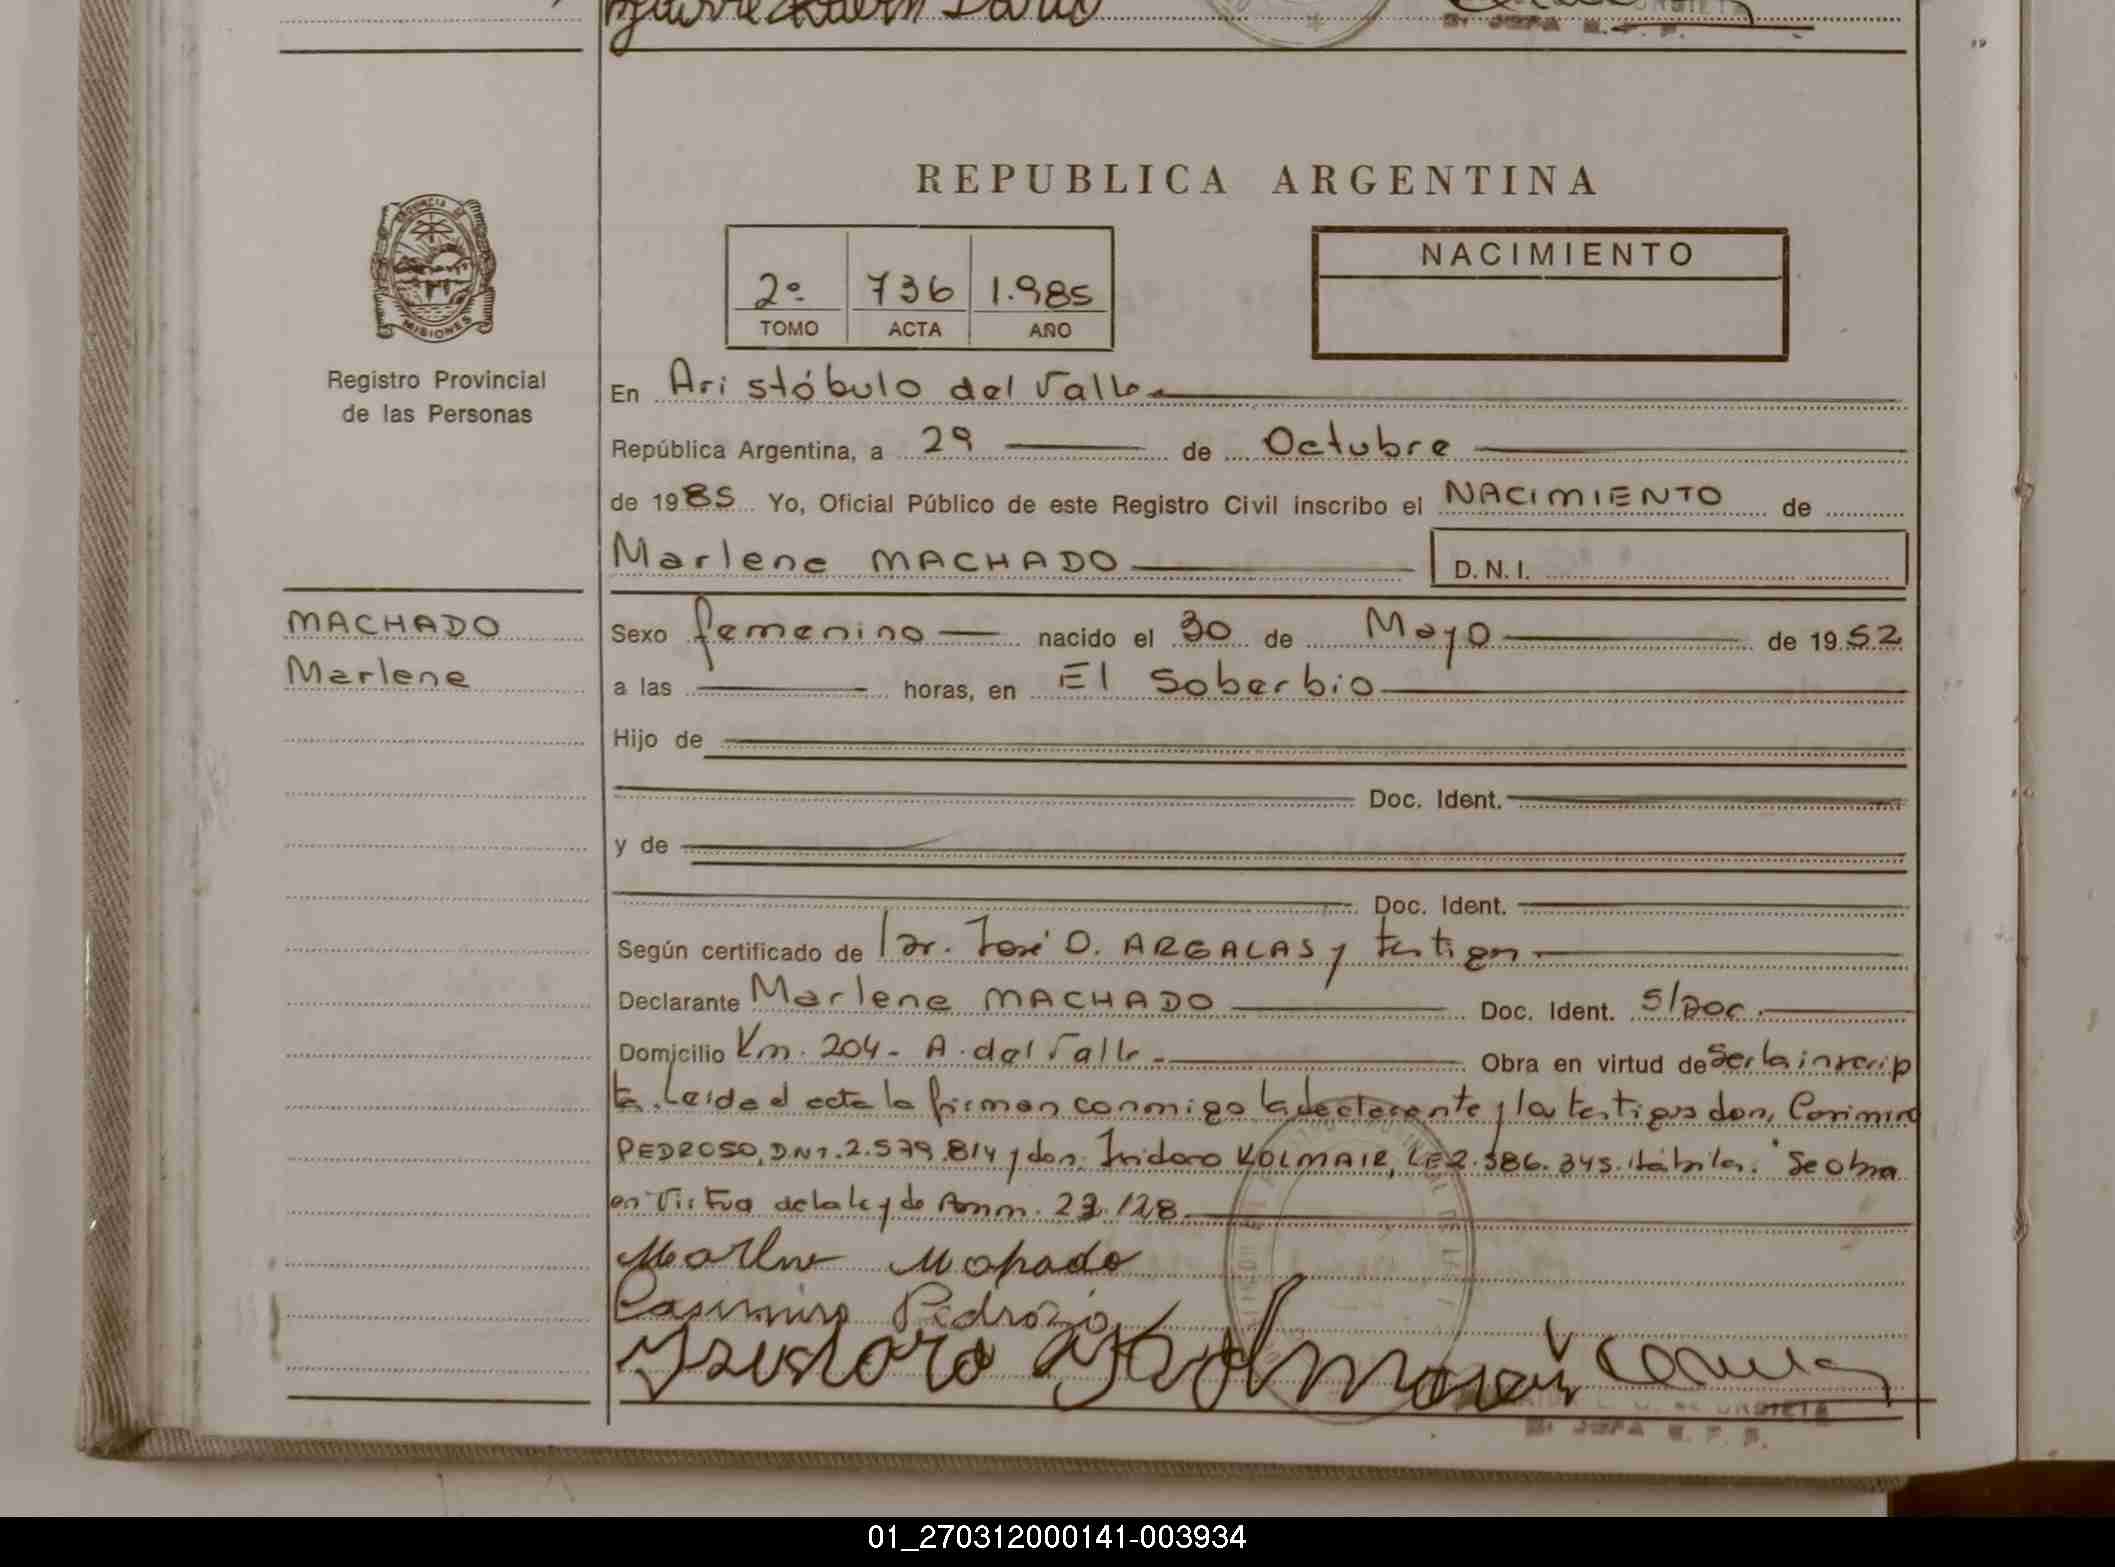 REPUBLICA ARGENTINA
PROVINCIA DE
MISIONES
Registro Provincial
de las Personas
2º 736 1.985
TOMO ACTA AÑO
NACIMIENTO
En Aristóbulo del Valle
República Argentina, a 29 de Octubre
de 1985 Yo, Oficial Público de este Registro Civil inscribo el NACIMIENTO de
Marlene MACHADO D.N.I.
MACHADO
Marlene
Sexo femenino nacido el 30 de Mayo de 1952
a las horas, en El Soberbio
Hijo de
Doc. Ident.
y de
Doc. Ident.
Según certificado de Dr. José O. ARGALAS y testigos
Declarante Marlene MACHADO Doc. Ident. S/Doc.
Domicilio Km. 204- A. del Valle - Obra en virtud de Ser la inscrip
ta. Leida el acta la firman conmigo la declarante y los testigos don, Casimiro
PEDROSO, DNI. 2.579.814 y don. Isidoro KOLMAIR, LE 2.386.345. Hábiles. Se obra
en Virtud de la ley de Amn. 23.128
Casimiro Pedrozo
Isidoro
JEFA
01_270312000141-003934